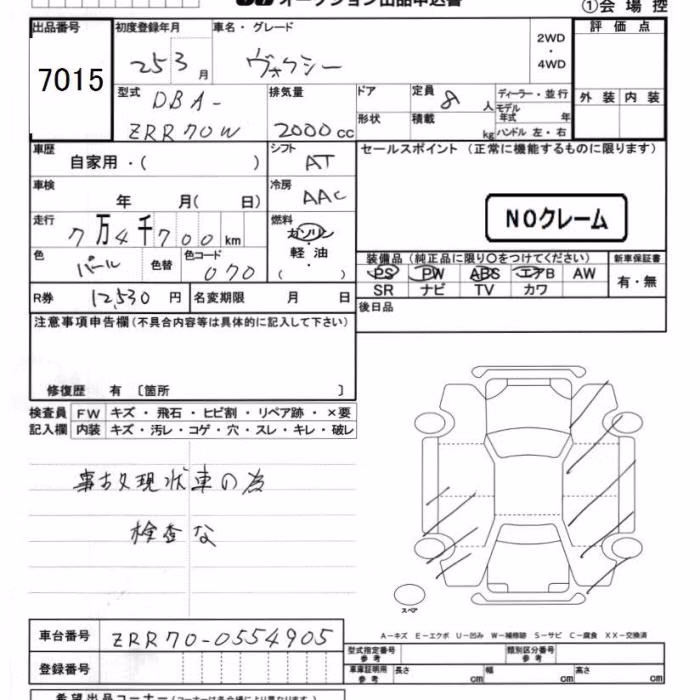 オークション出品申込書
①会場控
出品番号 初度登録年月 車名・グレード 評価点
7015 25 3月 ヴォクシー 2WD・4WD
型式 DBA- 排気量 ドア 定員 8人 ディーラー・並行 外装 内装
ZRR70W 2000cc 形状 積載 kg モデル年式 年 ハンドル 左・右
車歴 シフト セールスポイント (正常に機能するものに限ります)
自家用・( ) AT
車検 冷房
年 月( 日) AAC NOクレーム
走行 燃料
7万4千700km ガソリン・軽油・( )
色 パール 色替 色コード 070
装備品(純正品に限り○をつけてください) 新車保証書
PS PW ABS エアB AW 有・無
SR ナビ TV カワ
R券 12,530円 名変期限 月 日 後日品
注意事項申告欄(不具合内容等は具体的に記入して下さい)
修復歴 有 〔箇所 〕
検査員 FW キズ・飛石・ヒビ割・リペア跡・×要
記入欄 内装 キズ・汚レ・コゲ・穴・スレ・キレ・破レ
事故現状車の為
検査な
スペア
A−キズ E−エクボ U−凹み W−補修跡 S−サビ C−腐食 XX−交換済
車台番号 ZRR70-0554905 型式指定番号 参考 類別区分番号 参考
登録番号 車庫証明用 参考 長さ cm 幅 cm 高さ cm
希望出品コーナー(コーナーは各会場により異なります)